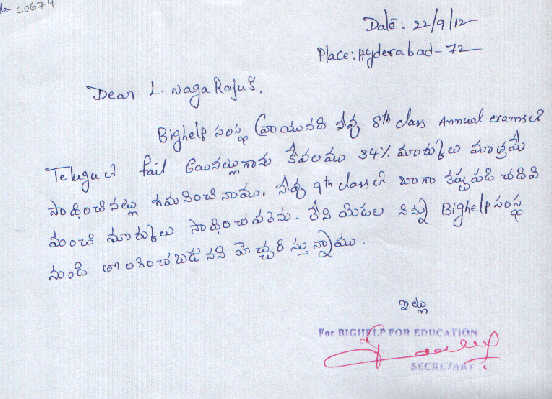 20674
Date: 22/9/12
Place: Hyderabad-72
Dear L. Naga Raju కి.
Bighelp సంస్థ వ్రాయునది నీవు 8th class Annual examsలో
Teluguలో fail అయినట్లుగాను కేవలము 34% మార్కులు మాత్రమే
సాధించినట్లు గమనించినాము. నీవు 9th classలో బాగా కష్టపడి చదివి
మంచి మార్కులు సాధించవలెను. లేని యెడల నిన్ను Bighelp సంస్థ
నుండి తొలగించబడునని హెచ్చరిస్తున్నాము.
ఇట్లు
For BIGHELP FOR EDUCATION
SECRETARY